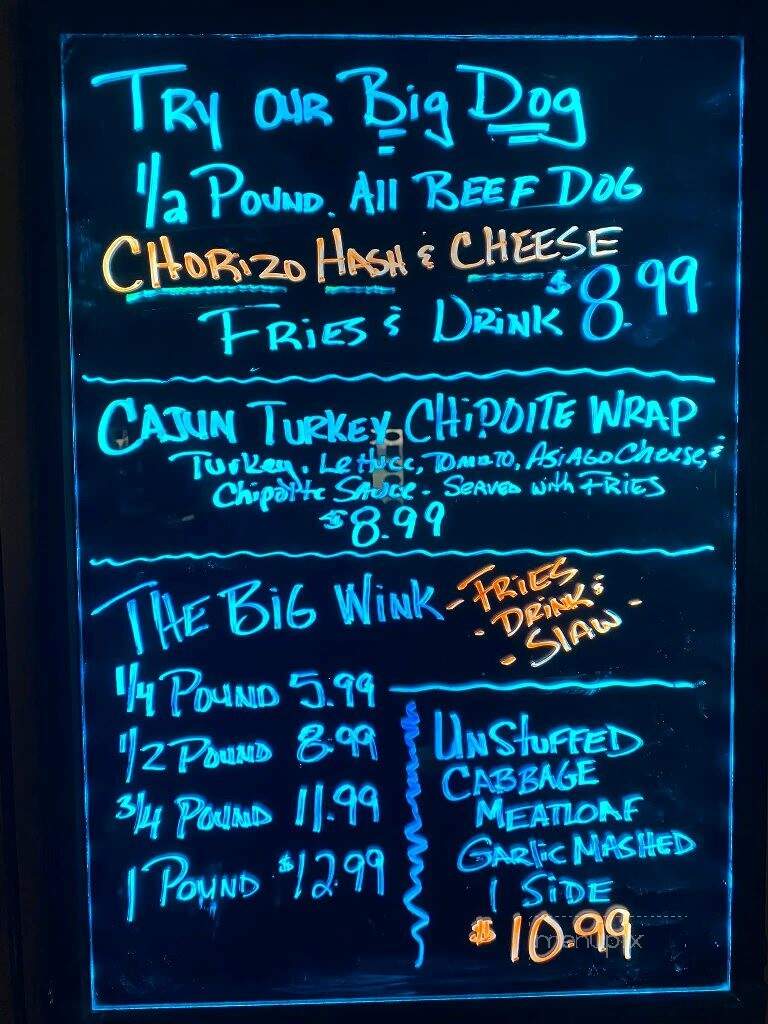 Try our Big Dog
1/2 Pound. All Beef Dog
Chorizo Hash & Cheese
Fries & Drink $8.99
Cajun Turkey Chipotle Wrap
Turkey, Lettuce, Tomato, Asiago Cheese, &
Chipotle Sauce - Served with Fries
$8.99
The Big Wink - Fries
- Drink &
- Slaw -
1/4 Pound 5.99
1/2 Pound 8.99
3/4 Pound 11.99
1 Pound $12.99
Unstuffed
Cabbage
Meatloaf
Garlic Mashed
1 Side
$10.99
menupix